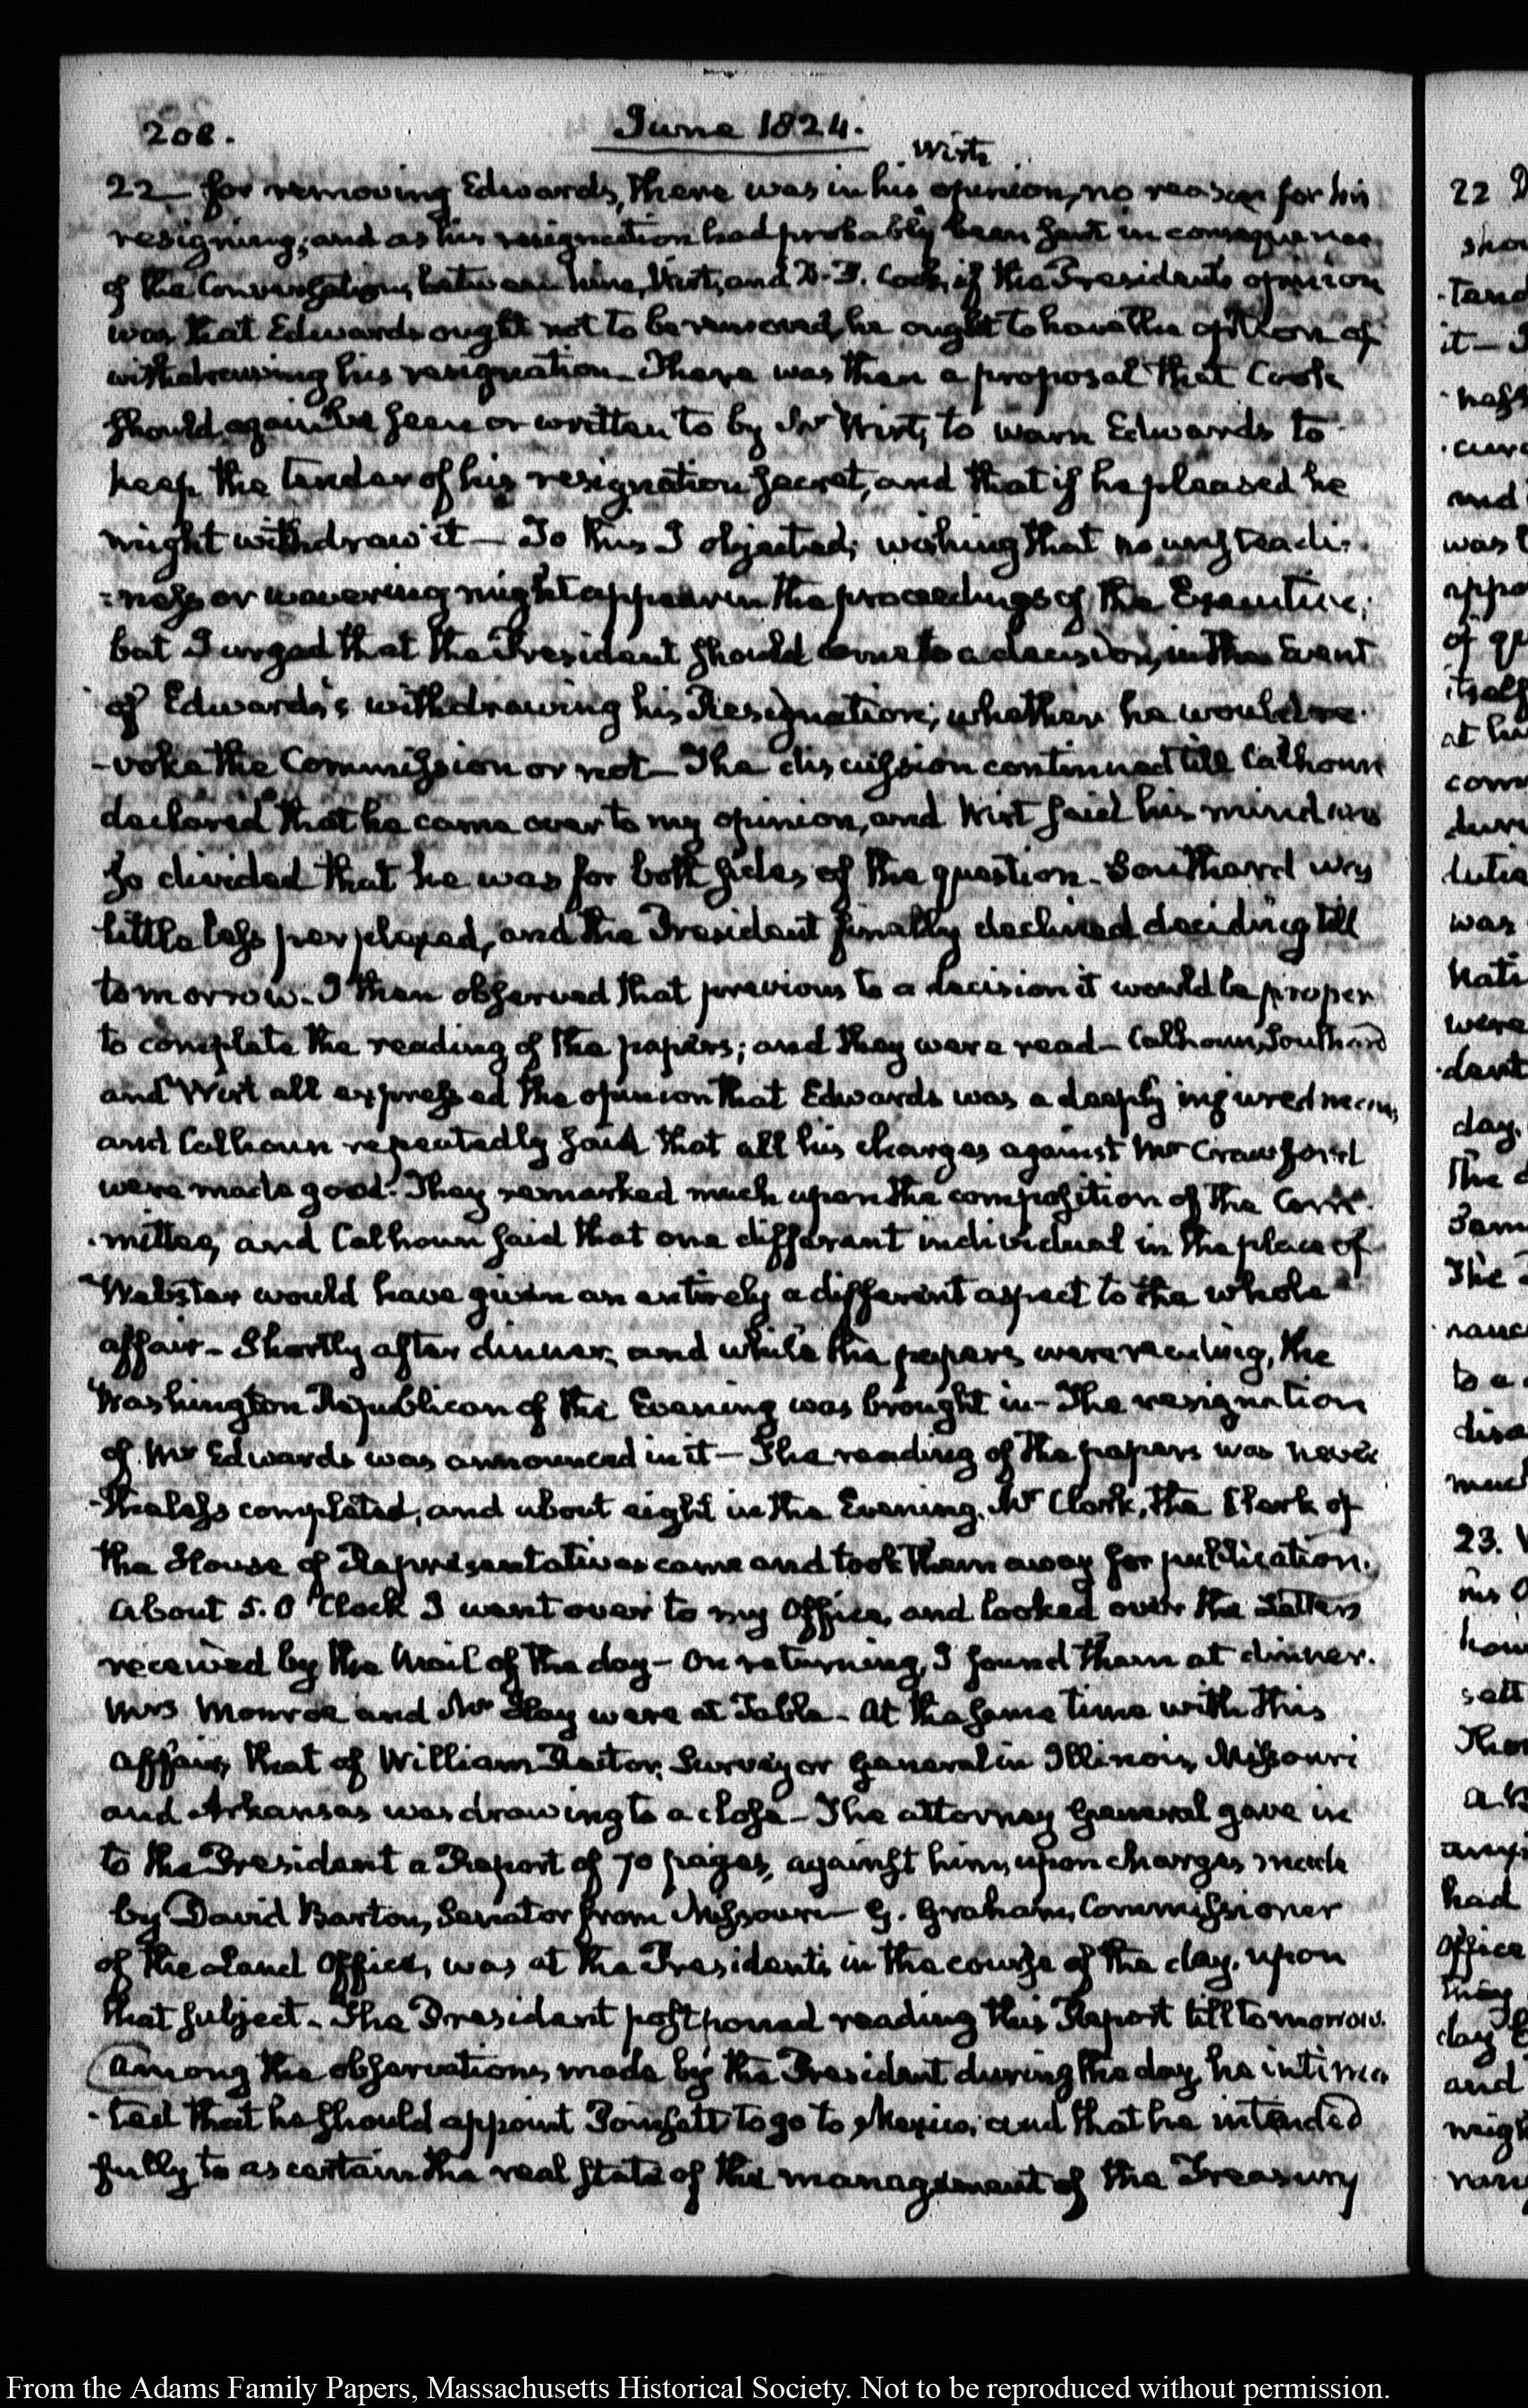 208.
June 1824.
Wirt's
22— for removing Edwards, there was in his opinion, no reason for his
resigning; and as his resignation had probably been sent in consequence
of the Conversation, between him, Wirt, and D. P. Cook, if the President's opinion
was that Edwards ought not to be removed, he ought to have the option of
withdrawing his resignation— There was then a proposal that Cook
should again be seen or written to by Mr Wirt, to warn Edwards to
keep the tender of his resignation secret, and that if he pleased he
might withdraw it— To this I objected; wishing that no unsteadi-
=ness or wavering might appear in the proceedings of the Executive;
but I urged that the President should come to a decision, in the Event
of Edwards's withdrawing his Resignation; whether he would re-
-voke the Commission or not— The discussion continued till Calhoun
declared that he came over to my opinion, and Wirt said his mind was
so divided that he was for both sides of the question. Southard was
little less perplexed, and the President finally declined deciding till
tomorrow. I then observed that previous to a decision it would be proper
to complete the reading of the papers; and they were read— Calhoun, Southard
and Wirt all expressed the opinion that Edwards was a deeply injured man,
and Calhoun repeatedly said that all his charges against Mr Crawford
were made good. They remarked much upon the composition of the Com-
-mittee, and Calhoun said that one different individual in the place of
Webster would have given an entirely a different aspect to the whole
affair— Shortly after dinner, and while the papers were reading, the
Washington Republican of the Evening was brought in— The resignation
of Mr Edwards was announced in it— The reading of the papers was never
-theless completed, and about eight in the Evening, Mr Clark, the Clerk of
the House of Representatives came and took them away for publication.
About 5. O'Clock I went over to my Office, and looked over the Letters
received by the Mail of the day— On returning, I found them at dinner.
Mrs Monroe and Mr Hay were at Table— At the same time with this
affair, that of William Rector, Surveyor General in Illinois, Missouri
and Arkansas was drawing to a close— The Attorney General gave in
to the President a Report of 70 pages, against him, upon charges made
by David Barton, Senator from Missouri— G. Graham, Commissioner
of the Land Office, was at the President's in the course of the day, upon
that subject. The President postponed reading this Report till tomorrow.
Among the observations, made by the President during the day, he intima
-ted that he should appoint Poinsett to go to Mexico; and that he intended
fully to ascertain the real state of the management of the Treasury
22
was
of
was
were
day.
The
The
to a
23.
had
Office
and
From the Adams Family Papers, Massachusetts Historical Society. Not to be reproduced without permission.